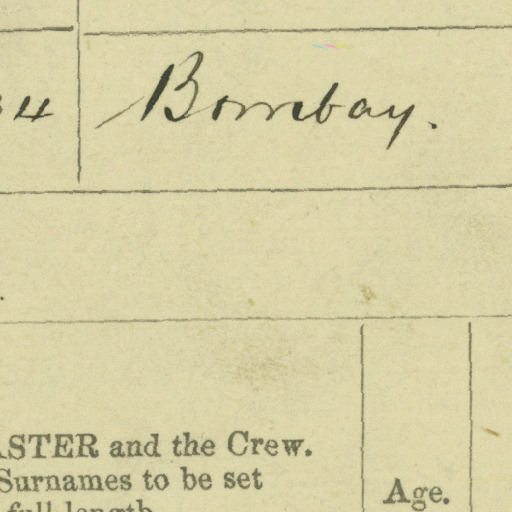 4 Bombay.
ASTER and the Crew.
Surnames to be set
full length
Age.